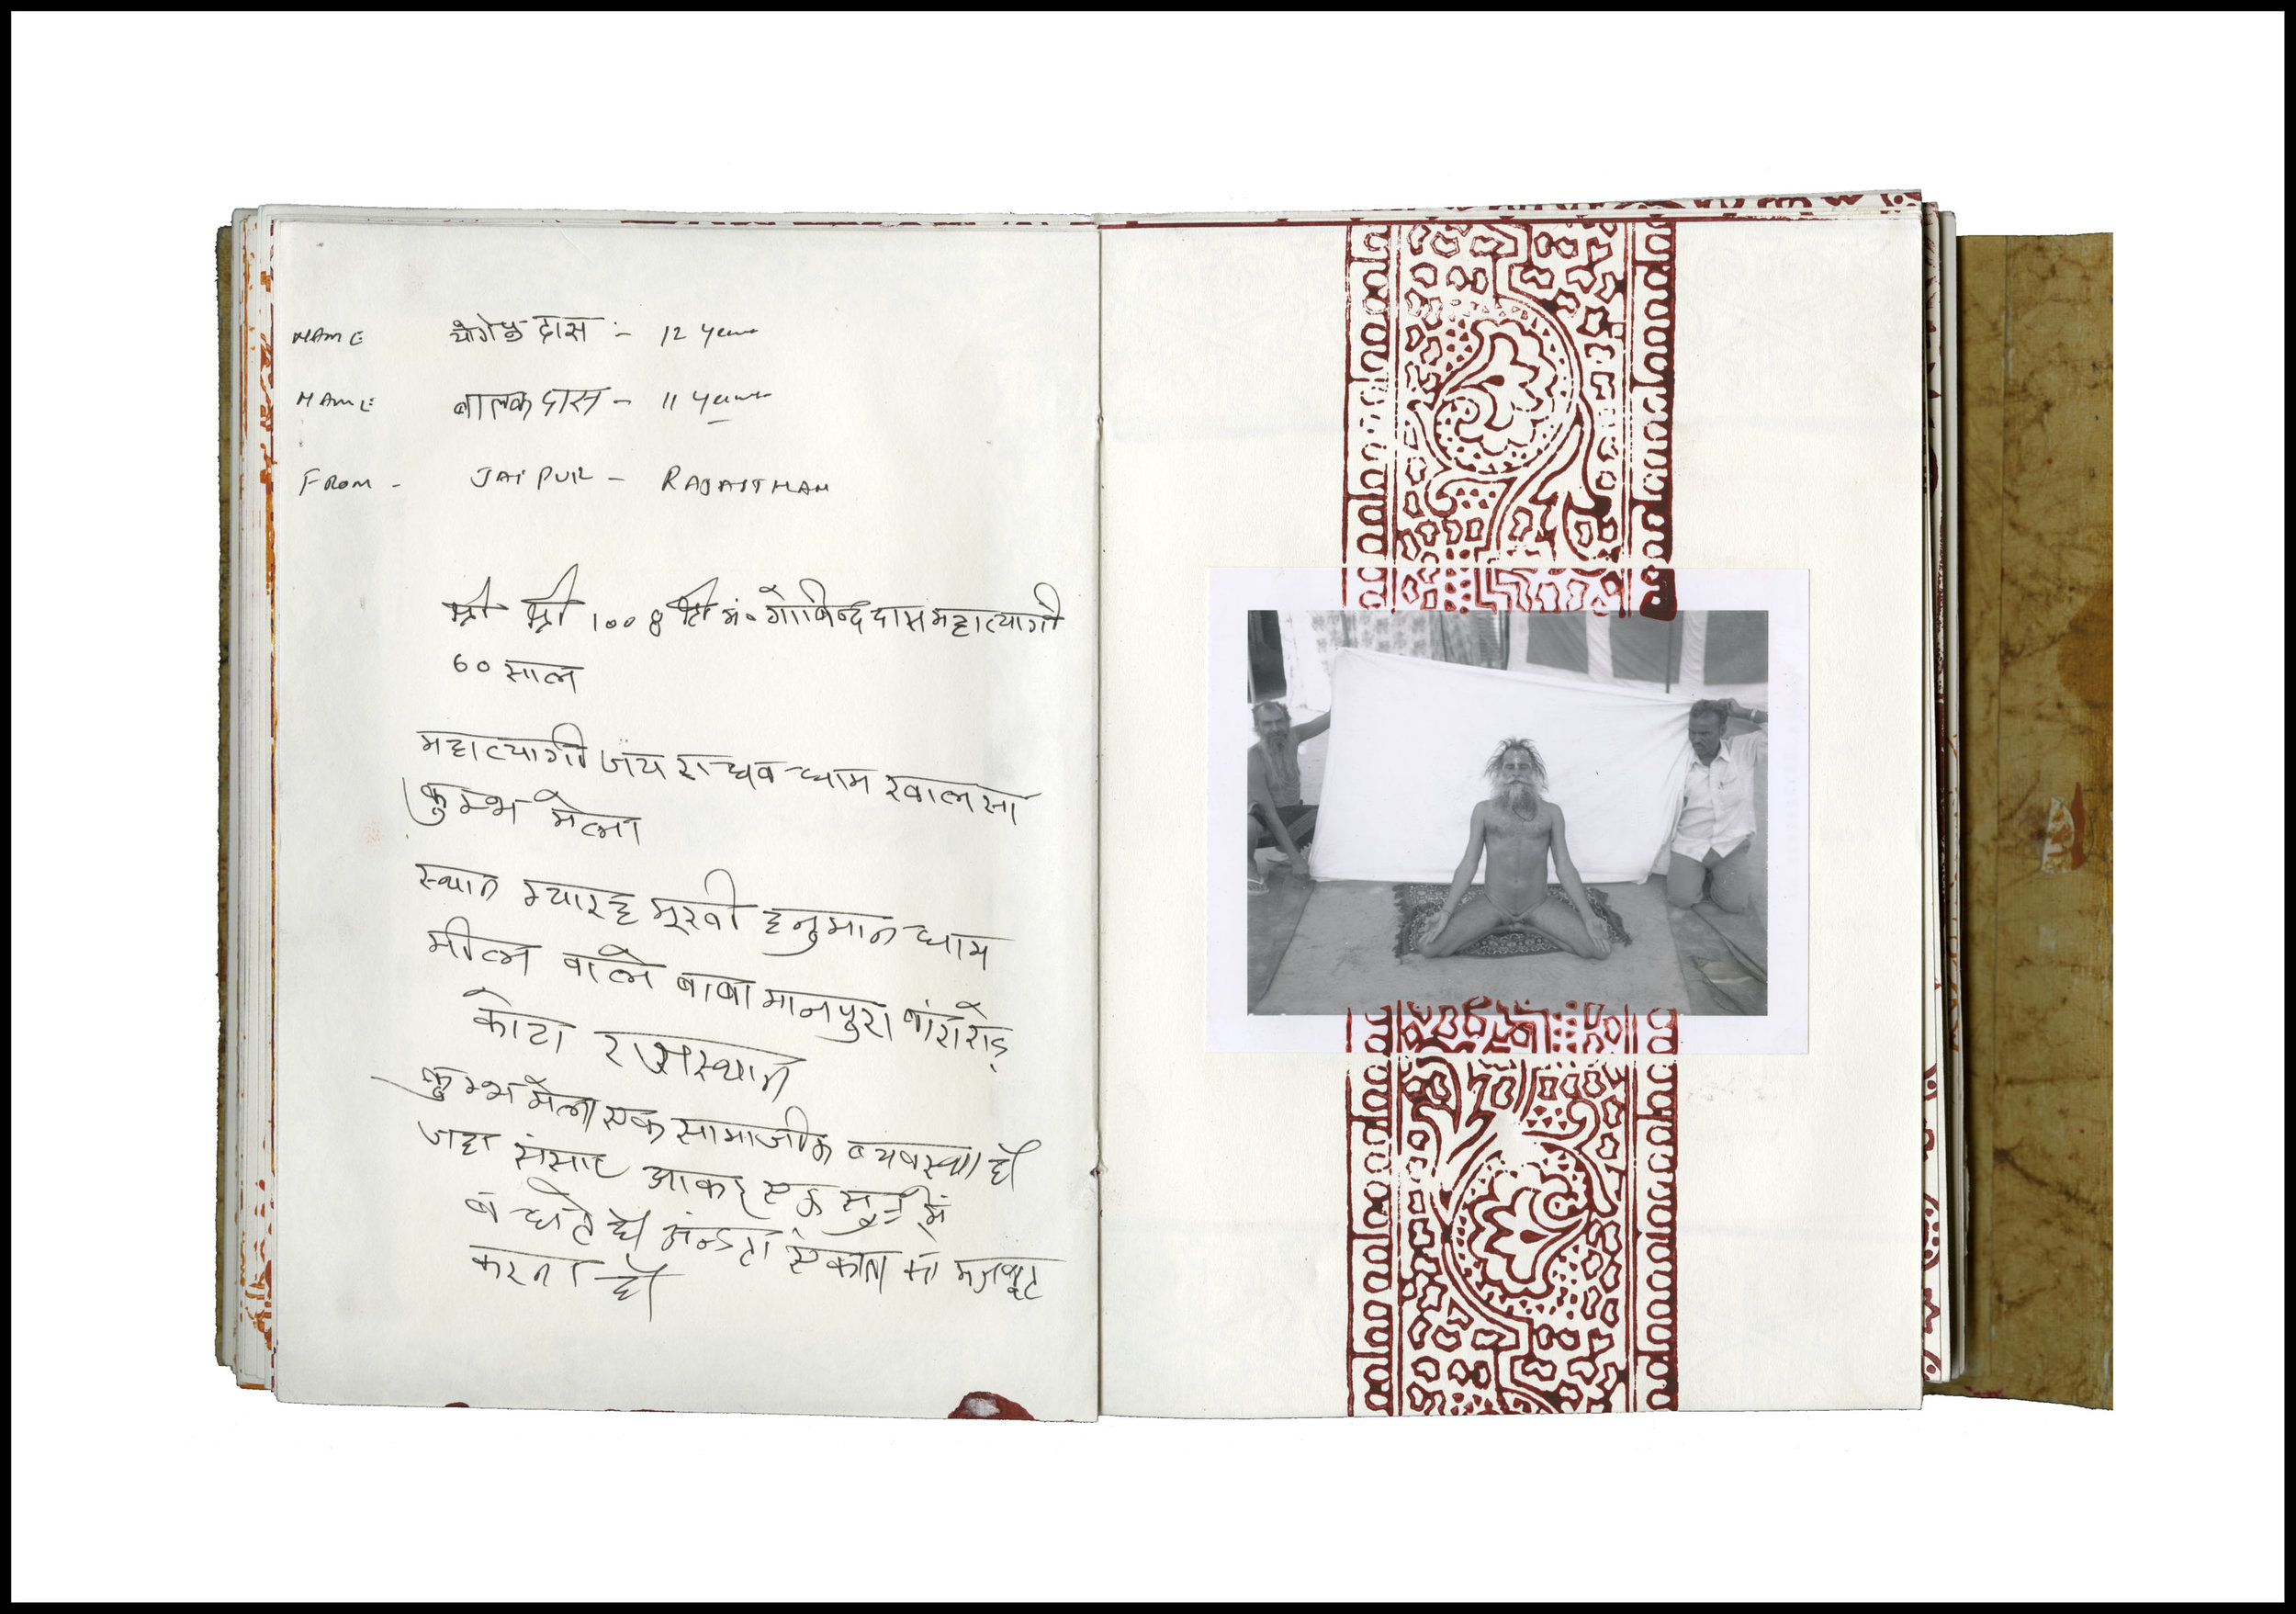 NAME योगेन्द्र दास :- 12 years
NAME बालक दास - 11 years
FROM - JAIPUR - RAJASTHAN
श्री श्री 1008 श्री मं० गोविन्द दास महात्यागी
60 साल
महात्यागी जय राघव धाम खालसा
कुम्भ मेला
स्थान ग्यारह मूखी हनुमान धाम
मील वाले बाबा मानपुरा बांरा रोड़
कोटा राजस्थान
कुम्भ मेला एक सामाजीक व्यवस्था है
जहा संसार आकर एक सुत्र में
बंधते है एकता को मजबूत
करता है